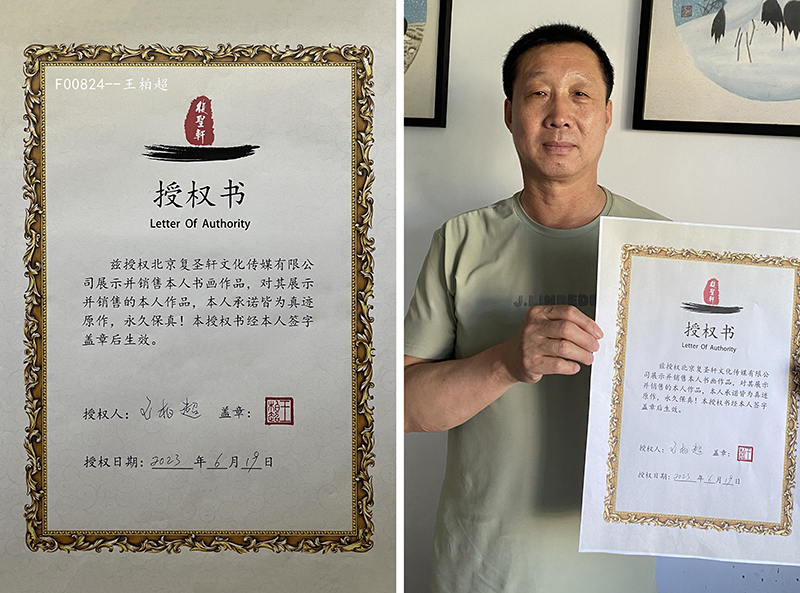 F00824--王柏超
復聖軒
授权书
Letter Of Authority
兹授权北京复圣轩文化传媒有限公
司展示并销售本人书画作品，对其展示
并销售的本人作品，本人承诺皆为真迹
原作，永久保真！本授权书经本人签字
盖章后生效。
授权人：王柏超 盖章：
授权日期：2023 年 6 月 19 日
復聖軒
授权书
Letter Of Authority
兹授权北京复圣轩文化传媒有限公
司展示并销售本人书画作品，对其展示
并销售的本人作品，本人承诺皆为真迹
原作，永久保真！本授权书经本人签字
盖章后生效。
授权人：王柏超 盖章：
授权日期：2023 年 6 月 19 日